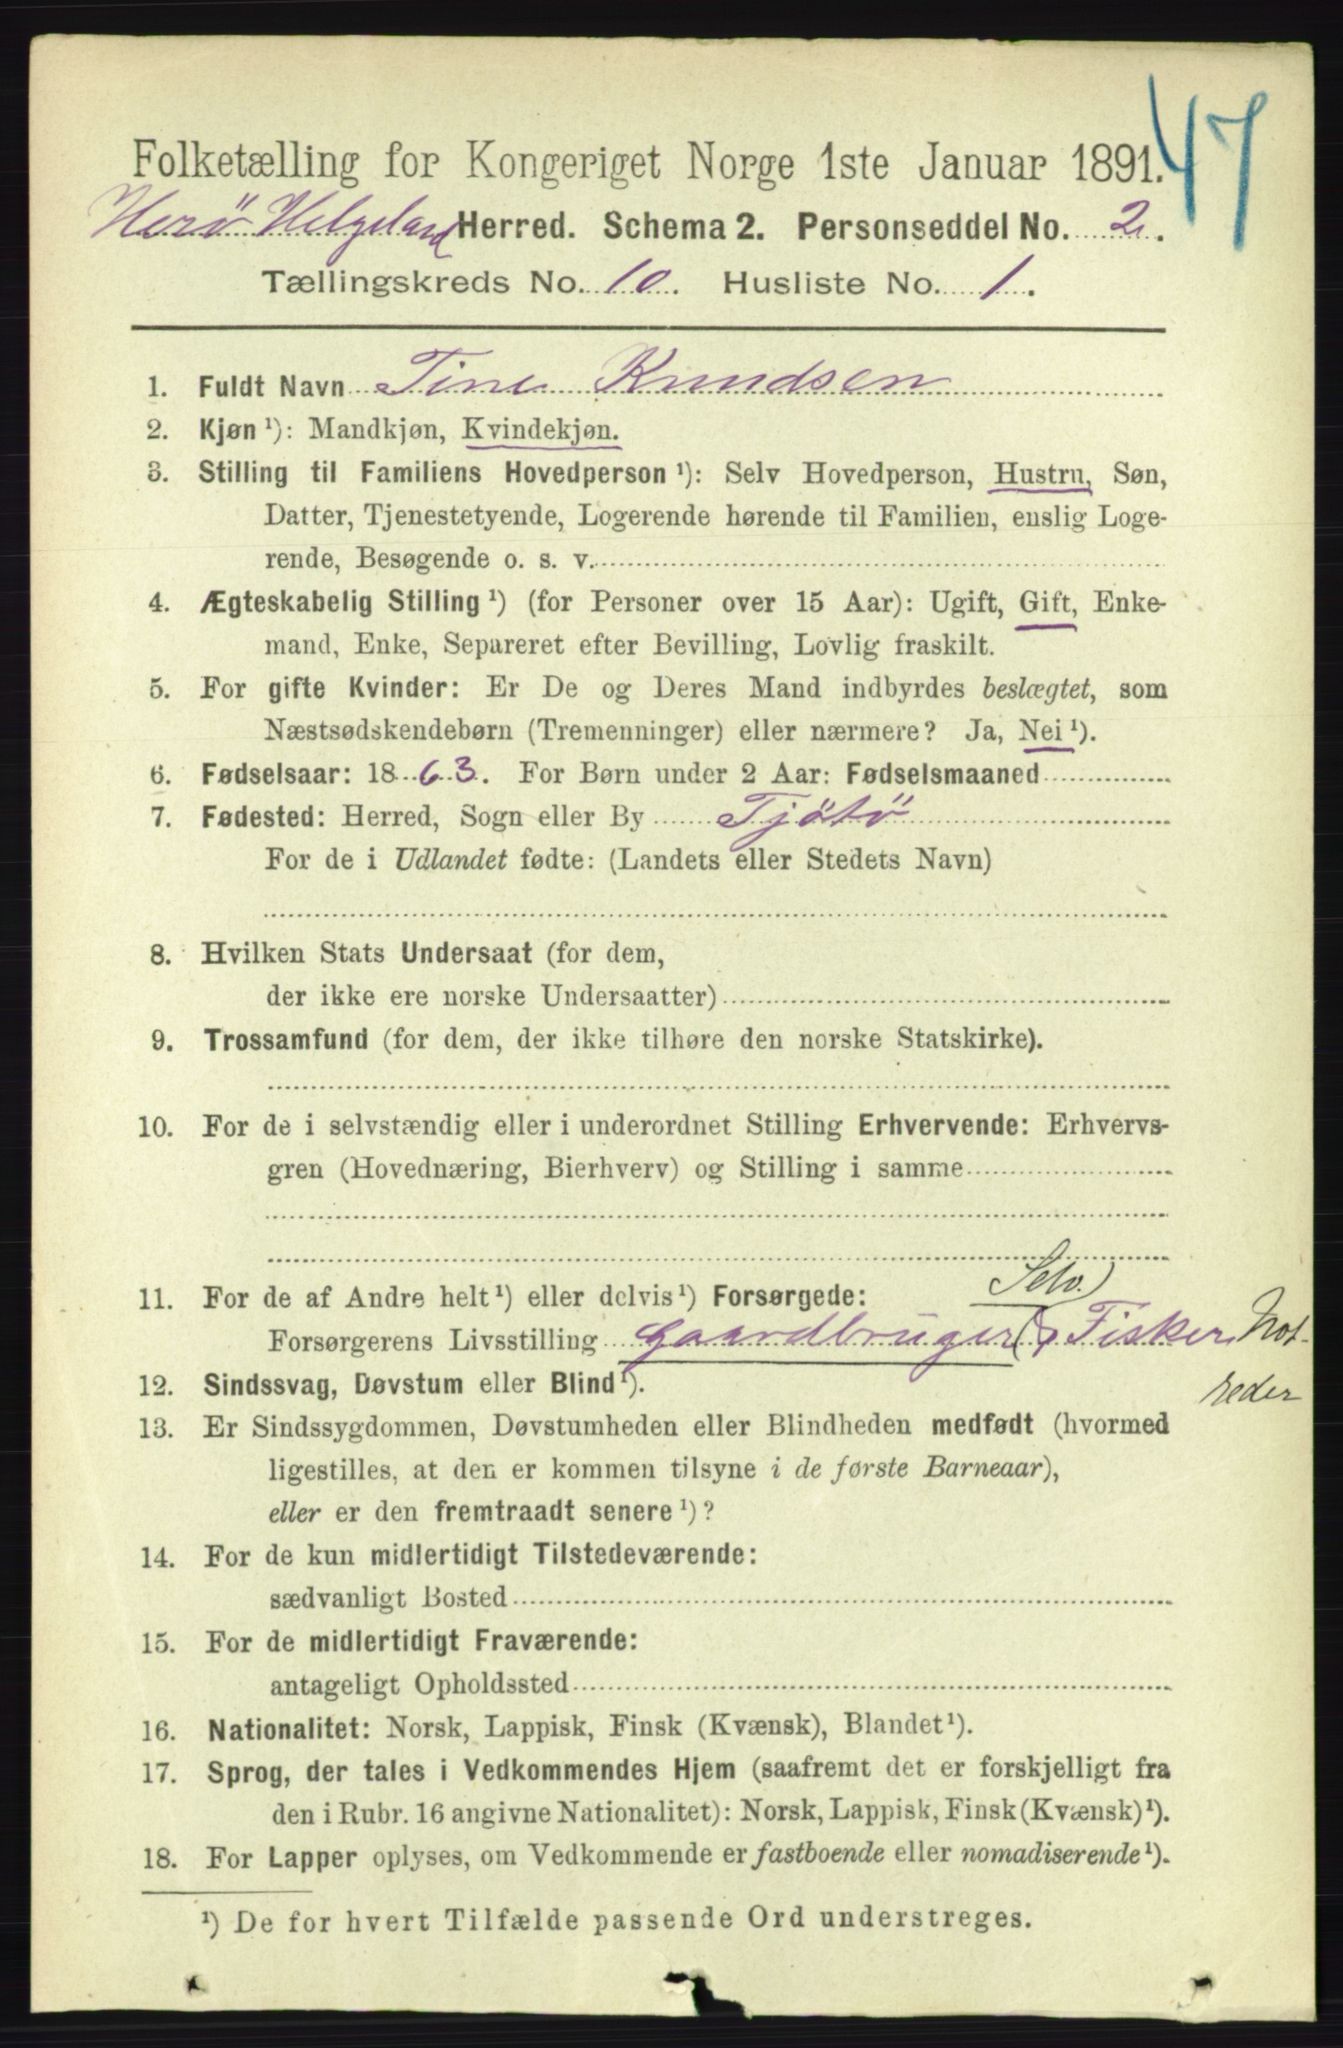 47
Folketælling for Kongeriget Norge 1ste Januar 1891.
Herö Helgeland Herred. Schema 2. Personseddel No. 2.
Tællingskreds No. 10. Husliste No. 1.
1. Fuldt Navn Tine Knudsen
2. Kjøn ¹): Mandkjøn, Kvindekjøn.
3. Stilling til Familiens Hovedperson ¹): Selv Hovedperson, Hustru, Søn,
Datter, Tjenestetyende, Logerende hørende til Familien, enslig Loge-
rende, Besøgende o. s. v.
4. Ægteskabelig Stilling ¹) (for Personer over 15 Aar): Ugift, Gift, Enke-
mand, Enke, Separeret efter Bevilling, Lovlig fraskilt.
5. For gifte Kvinder: Er De og Deres Mand indbyrdes beslægtet, som
Næstsødskendebørn (Tremenninger) eller nærmere? Ja, Nei ¹).
6. Fødselsaar: 1863. For Børn under 2 Aar: Fødselsmaaned
7. Fødested: Herred, Sogn eller By Tjötö
For de i Udlandet fødte: (Landets eller Stedets Navn)
8. Hvilken Stats Undersaat (for dem,
der ikke ere norske Undersaatter)
9. Trossamfund (for dem, der ikke tilhøre den norske Statskirke).
10. For de i selvstændig eller i underordnet Stilling Erhvervende: Erhvervs-
gren (Hovednæring, Bierhverv) og Stilling i samme
Selv.)
11. For de af Andre helt ¹) eller delvis ¹) Forsørgede:
Forsørgerens Livsstilling Gaardbruger & Fisker Not-
reder
12. Sindssvag, Døvstum eller Blind ¹).
13. Er Sindssygdommen, Døvstumheden eller Blindheden medfødt (hvormed
ligestilles, at den er kommen tilsyne i de første Barneaar),
eller er den fremtraadt senere ¹)?
14. For de kun midlertidigt Tilstedeværende:
sædvanligt Bosted
15. For de midlertidigt Fraværende:
antageligt Opholdssted
16. Nationalitet: Norsk, Lappisk, Finsk (Kvænsk), Blandet ¹).
17. Sprog, der tales i Vedkommendes Hjem (saafremt det er forskjelligt fra
den i Rubr. 16 angivne Nationalitet): Norsk, Lappisk, Finsk (Kvænsk) ¹).
18. For Lapper oplyses, om Vedkommende er fastboende eller nomadiserende ¹).
¹) De for hvert Tilfælde passende Ord understreges.